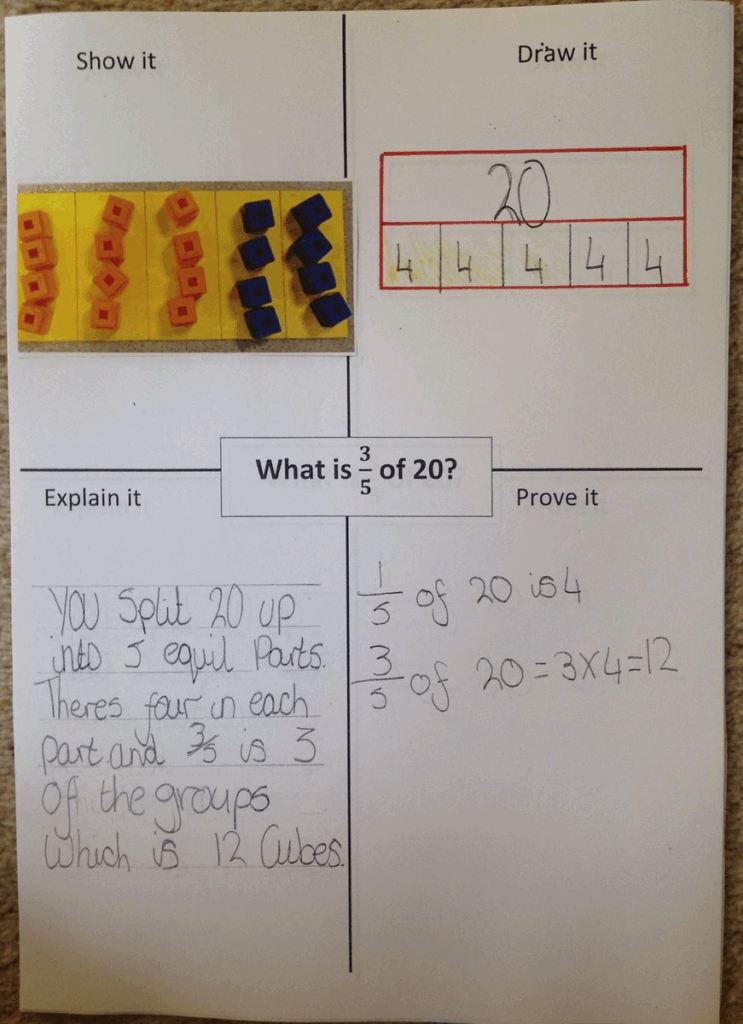 Show it
Draw it
20
4 4 4 4 4
What is 3/5 of 20?
Explain it
Prove it
You Split 20 up
into 5 equil Parts.
Theres four in each
part and 3/5 is 3
Of the groups
Which is 12 Cubes.
1/5 of 20 is 4
3/5 of 20 = 3x4=12